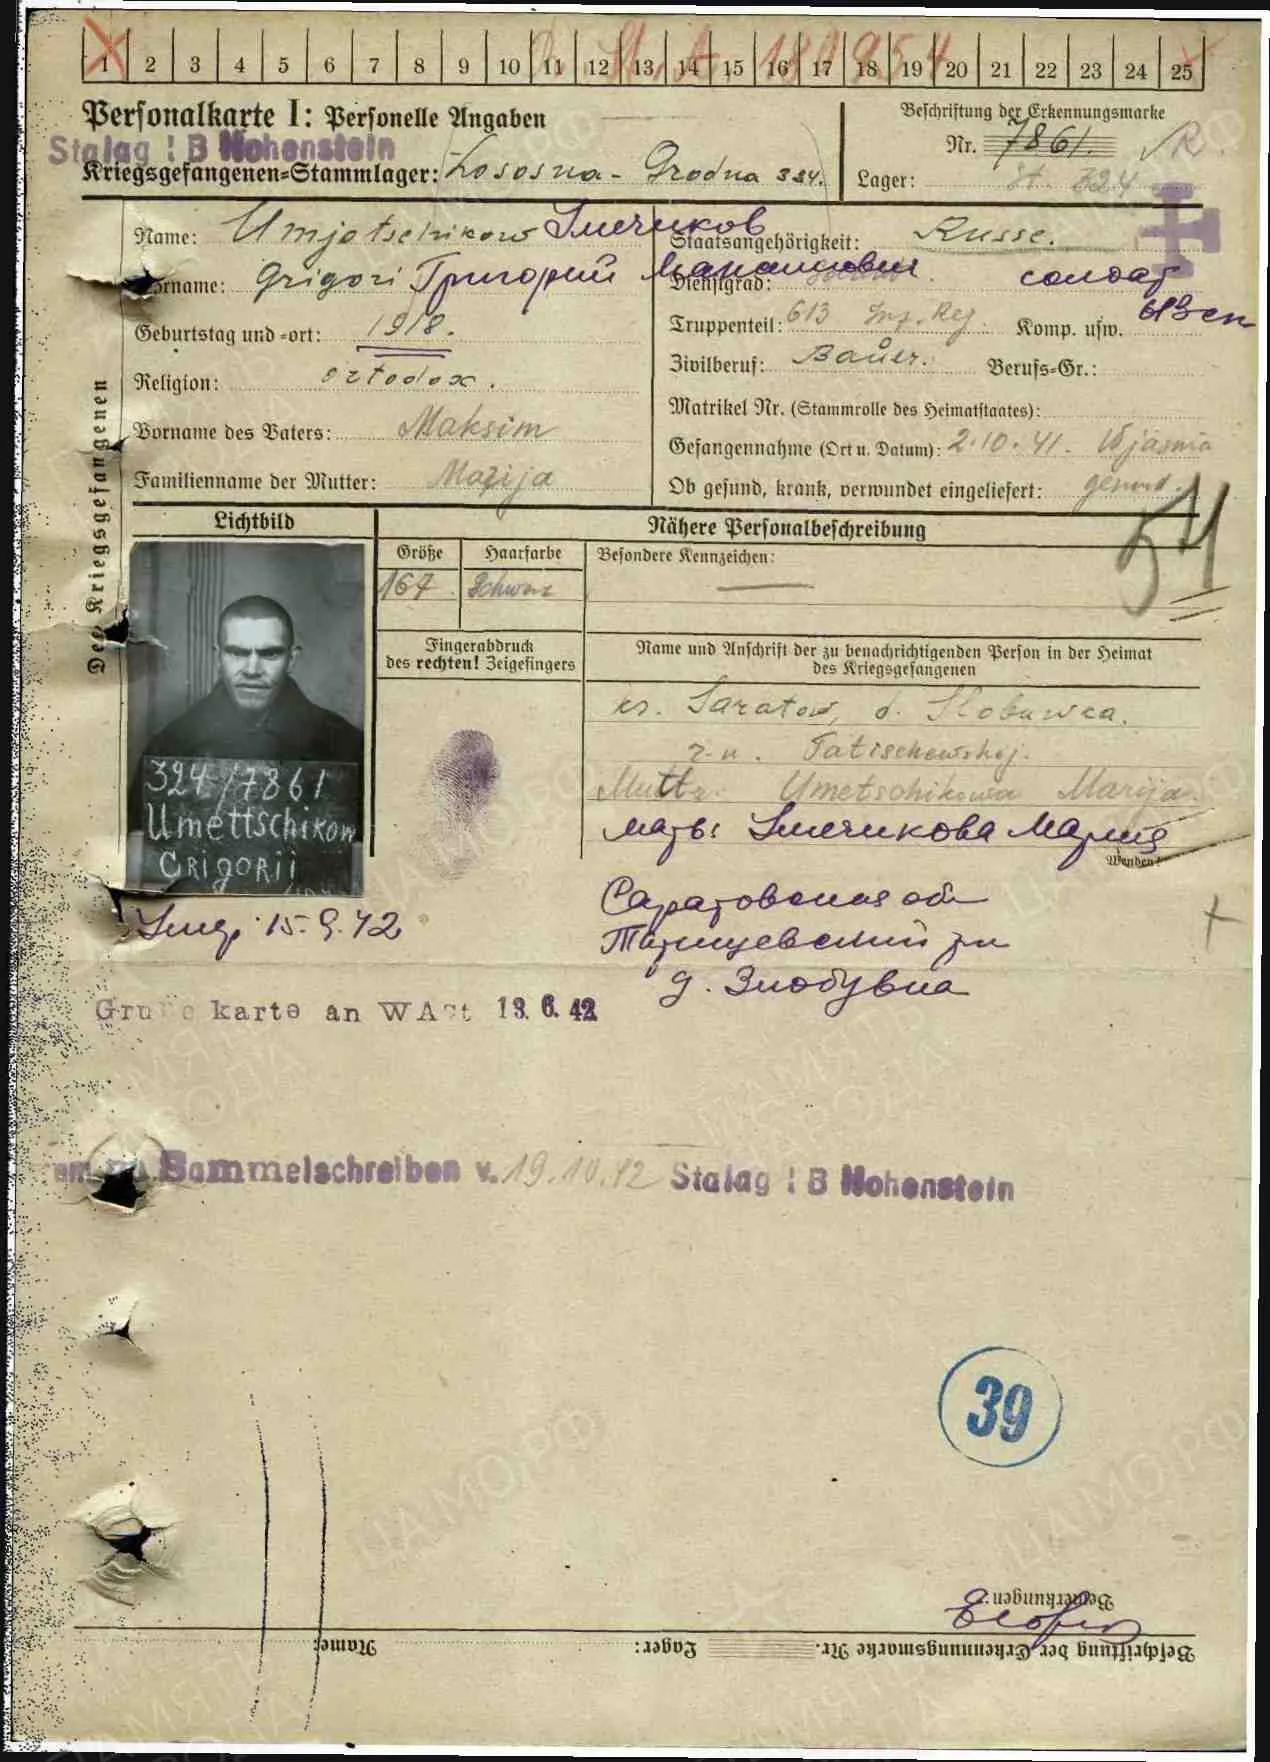 1 2 3 4 5 6 7 8 9 10 11 12 13 14 15 16 17 18 19 20 21 22 23 24 25
Personalkarte I: Personelle Angaben
Beschriftung der Erkennungsmarke
Nr. 7861.
Stalag I B Hohenstein
Kriegsgefangenen=Stammlager: Lososna - Grodna 324.
Lager: St. 324
Des Kriegsgefangenen
Name: Umjotschikow Умечиков
Staatsangehörigkeit: Russe.
Vorname: Grigori Григорий Макашович
Dienstgrad: солдат
Geburtstag und =ort: 1918.
Truppenteil: 613 Inf. Reg. Komp. usw. 613 сп
Religion: ortodox.
Zivilberuf: Bauer. Berufs=Gr.:
Matrikel Nr. (Stammrolle des Heimatstaates):
Vorname des Vaters: Maksim
Gefangennahme (Ort u. Datum): 2.10.41. Wjasma
Familienname der Mutter: Marija
Ob gesund, krank, verwundet eingeliefert: gesund.
51
Lichtbild
Nähere Personalbeschreibung
Größe Haarfarbe Besondere Kennzeichen:
167 Schwarz
Fingerabdruck
des rechten! Zeigefingers
Name und Anschrift der zu benachrichtigenden Person in der Heimat
des Kriegsgefangenen
Saratow, d. Slobuwca.
r-n. Tatischewskoj.
Mutter. Umetschikowa Marija.
мать: Умечикова Мария
Wenden!
324/7861
Umettschikow
GRIGORII
Саратовская об
Татищевский рн
д. Злобувка
15.9.42
karte an WASt 13.6.42
Sammelschreiben v. 19.10.42 Stalag I B Hohenstein
39
Bemerkungen:
Beschriftung der Erkennungsmarke Nr. Lager: Name: